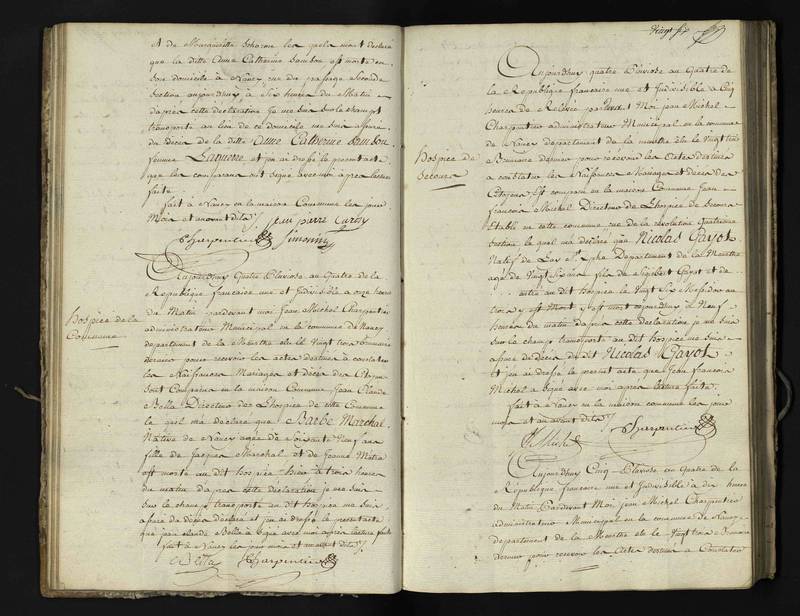 et de Marguerite                 les quels m'ont déclaré
que la ditte Anne Catherine Sambou est morte en
son domicile à Nancy rue du passage Seconde
Section aujourd'huy à Six heures du Matin
d'après cette déclaration je me suis sur le champ
transporté au lieu de ce domicile me suis assuré
du Décès de la ditte Anne Catherine Sambou
femme Laguerre et j'en ai dressé le present acte
que les comparans ont signé avec moi après lecture
faitte
fait à Nancy en la maison Commune les jour
Mois et an avant dits
jean pierre
Charpentier Simonin
Aujourdhuy Quatre Pluviose an Quatre de la
République française une et Indivisible à onze heures
du Matin pardevant moi jean Michel Charpentier
Hospice de la
Commune
administrateur Municipal en la commune de Nancy
departement de la Meurthe élu le Vingt trois Brumaire
dernier pour recevoir les actes destinés à constater
les Naissances Mariages et décès des Citoyens
sont Comparus en la maison Commune Jean Claude
Bella Directeur de l'hospice de cette Commune
le quel m'a déclaré que Barbe Marchal
Native de Nancy agée de Soixante Neuf ans
fille de jacques Marechal et de Jeanne
est morte au dit hospice hier à trois heures
du matin d'après cette déclaration je me suis
sur le champ transporté au dit hospice me suis
assuré du Décès déclaré et j'en ai dressé le present acte
que jean claude Bella à signé avec moi après lecture faitte
fait à Nancy les jour mois et an avant dits
Bella Charpentier
Vingt six
Aujourdhuy quatre Pluviose an Quatre de
la République française une et Indivisible à Cinq
heures de Relevée pardevant Moi jean Michel
Charpentier administrateur Municipal en la commune
de Nancy departement de la meurthe élu le Vingt trois
Hospice de
Secours
Brumaire dernier pour recevoir les Actes destinés
à constater les Naissances Mariages et décès des
Citoyens Est comparu en la maison Commune Jean
françois Michel Directeur de l'hospice de Secours
Etabli en cette commune rue de la révolution Quatrieme
Section le quel m'a déclaré que Nicolas Gayot
Natif de                 Departement de la Meurthe
agé de Vingt Six ans fils de Sigisbert Gayot et de
entré au dit hospice le Vingt Six Messidor an
trois y est Mort aujourdhuy à Neuf
heures du matin d'après cette déclaration je me suis
sur le champ transporté au dit hospice me suis
assuré du Décès du dit Nicolas Gayot
et j'en ai dressé le present acte que Jean françois
Michel à signé avec moi après lecture faitte
fait à Nancy en la maison commune les jour
mois et an avant dits
Michel Charpentier
Aujourdhuy Cinq Pluviose an Quatre de la
République française une et Indivisible à dix heures
du Matin Pardevant Moi jean Michel Charpentier
administrateur Municipal en la commune de Nancy
departement de la Meurthe élu le Vingt trois Brumaire
dernier pour recevoir les Actes destinés à Constater